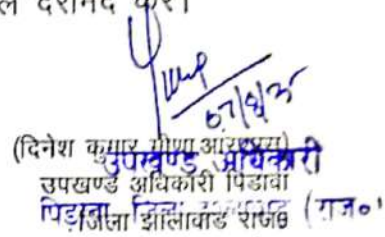 दरामद करें।
07/8/25
(दिनेश कुमार मीणा आर०ए०एस)
उपखण्ड अधिकारी
उपखण्ड अधिकारी पिडावा
पिड़ावा जिला (राज०)
जिला झालावाड राज०